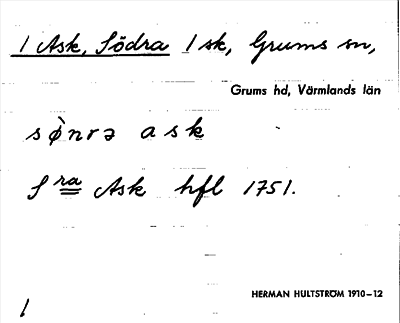 1 Ask, Södra 1 sk, Grums sn,
Grums hd, Värmlands län
sǿ̀nrə ask
S ra Ask hfl 1751.
HERMAN HULTSTRÖM 1910–12
1